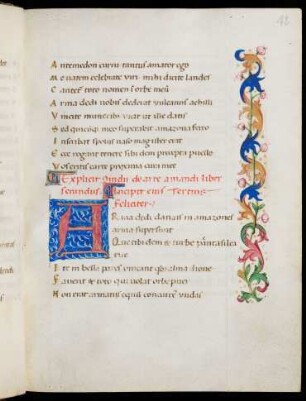 Automedon curru tantus amator ego
Me vatem celebrate viri mihi dicite laudes
Cantet toto nomen i orbe meu
Arma dedi vobis dederat vulcanus achilli
Vincite muneribus vicit ut ille datis
Sed quicuqı meo superabit amazona ferro
Inscribat spolijs naso magister erat
Ecce rogant tenere sibi dem precepta puelle
Vos eritis carte proxima cura mee
Explicit Ouidij de arte amandi liber
secundus Incipit eius Tertius
feliciter
Arma dedi danais in amazones
arma supersunt
Que tibi dem et turbe pentasilea
tue
Ite in bella pares vincant qbus alma dione
Fauerit et toto qui uolat orbe puer
Non erat armatis equu concurrere nudas